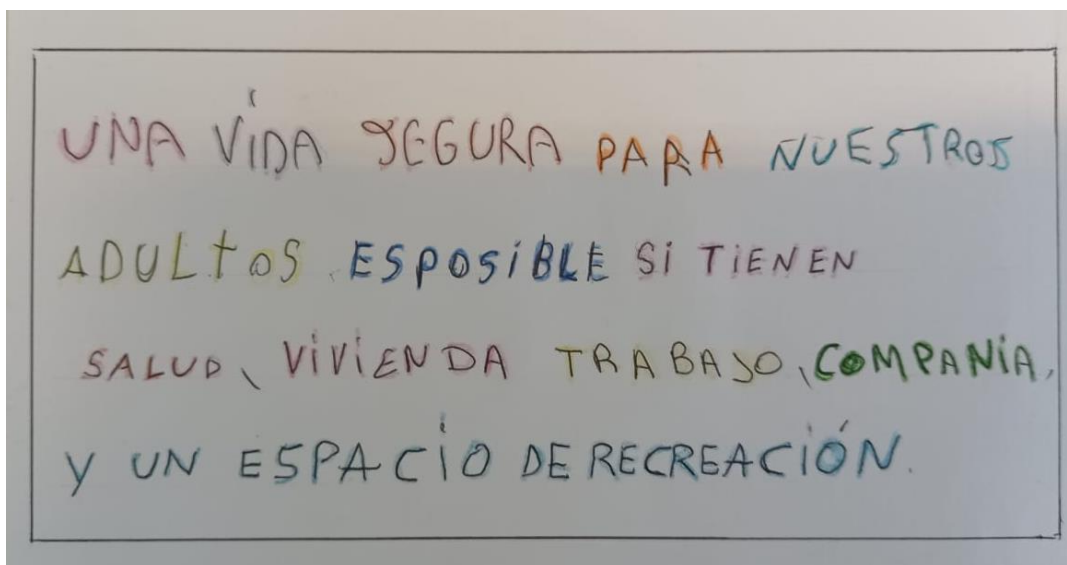 UNA ViDA SEGURA PARA NUESTROS
ADULtOS ESPOSiBLE Si TiENEN
SALUD, ViViENDA TRABAJO, COMPANiA,
Y UN ESPACiO DE RECREACiÓN.